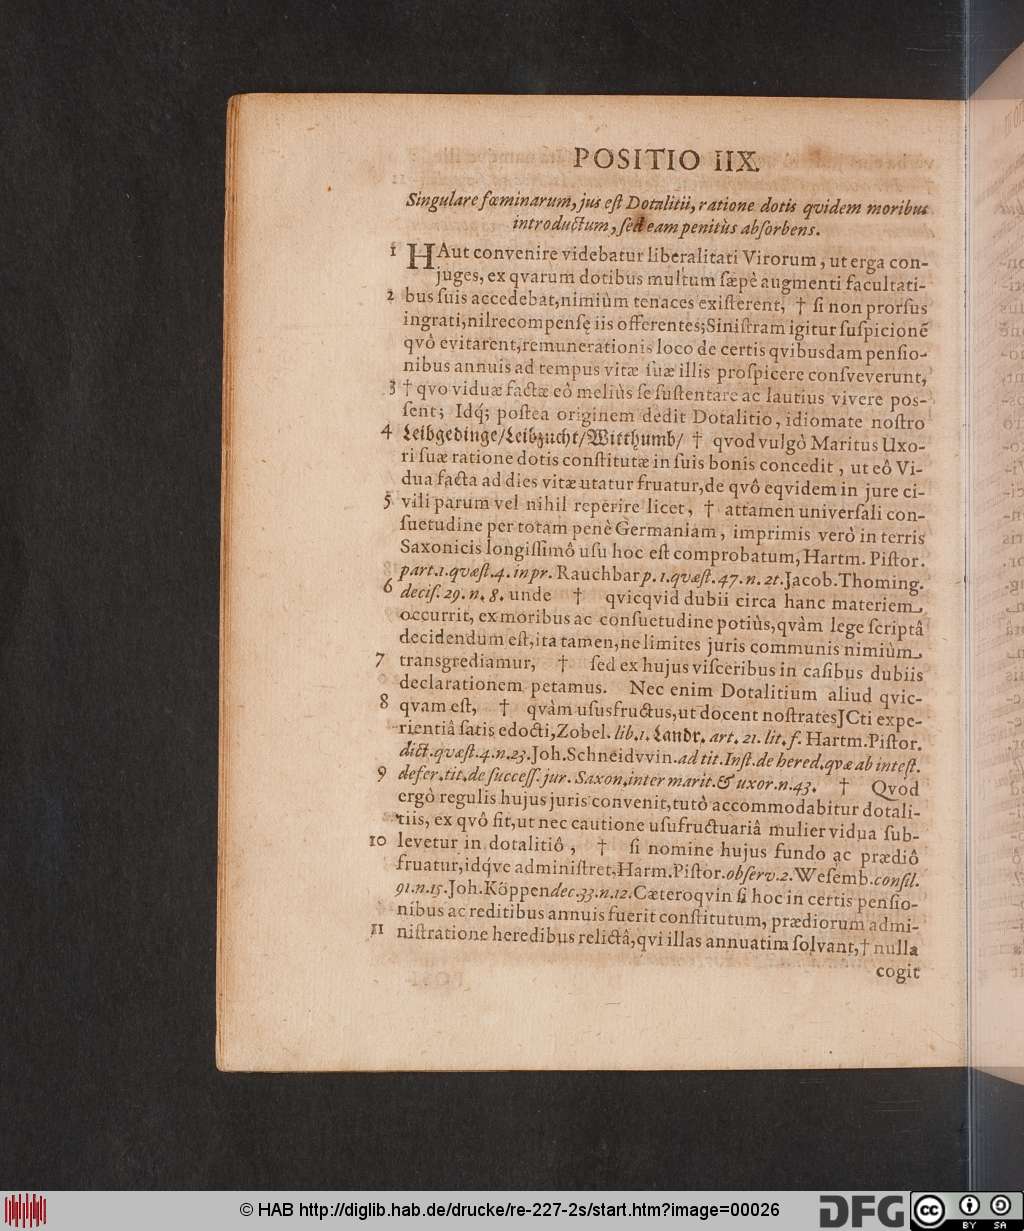 POSITIO IIX.
Singulare fœminarum, jus eſt Dotalitii, ratione dotis qvidem moribus
introductum, ſed eam penitùs abſorbens.
1 HAut convenire videbatur liberalitati Virorum, ut erga con-
juges, ex qvarum dotibus multum ſæpè augmenti facultati-
2 bus ſuis accedebat, nimiùm tenaces exiſterent, † ſi non prorſus
ingrati, nil recompenſę iis offerentes; Siniſtram igitur ſuſpicionẽ
qvô evitarent, remunerationis loco de certis qvibusdam penſio-
nibus annuis ad tempus vitæ ſuæ illis proſpicere conſveverunt,
3 † qvo viduæ factæ eô meliùs ſe ſuſtentare ac lautius vivere poſ-
ſent; Idq́; poſtea originem dedit Dotalitio, idiomate noſtro
4 Leibgedinge/Leibzucht/Witthumb/ † qvod vulgò Maritus Uxo-
ri ſuæ ratione dotis conſtitutæ in ſuis bonis concedit, ut eô Vi-
dua facta ad dies vitæ utatur fruatur, de qvô eqvidem in jure ci-
5 vili parum vel nihil reperire licet, † attamen univerſali con-
ſuetudine per totam penè Germaniam, imprimis verò in terris
Saxonicis longiſſimô uſu hoc eſt comprobatum, Hartm. Piſtor.
part. 1. quæſt. 4. in pr. Rauchbar p. 1. quæſt. 47. n. 21. Jacob. Thoming.
6 deciſ. 29. n. 8. unde † qvicqvid dubii circa hanc materiem
occurrit, ex moribus ac conſuetudine potiùs, qvàm lege ſcriptâ
decidendum eſt, ita tamen, ne limites juris communis nimiùm
7 transgrediamur, † ſed ex hujus viſceribus in caſibus dubiis
declarationem petamus. Nec enim Dotalitium aliud qvic-
8 qvam eſt, † qvàm uſusfructus, ut docent noſtrates JCti expe-
rientiâ ſatis edocti, Zobel. lib. 1. Landr. art. 21. lit. f. Hartm. Piſtor.
dict. quæſt. 4. n. 23. Joh. Schneidvvin. ad tit. Inſt. de hered. qvæ ab inteſt.
9 defer. tit. de ſucceſſ. jur. Saxon. inter marit. & uxor. n. 43. † Qvod
ergò regulis hujus juris convenit, tutò accommodabitur dotali-
tiis, ex qvô fit, ut nec cautione uſufructuariâ mulier vidua ſub-
10 levetur in dotalitiô, † ſi nomine hujus fundo ac prædiô
fruatur, idqve adminiſtret, Harm. Piſtor. obſerv. 2. Weſemb. conſil.
91. n. 15. Joh. Köppen dec. 33. n. 12. Cæteroqvin ſi hoc in certis penſio-
nibus ac reditibus annuis fuerit conſtitutum, prædiorum admi-
11 niſtratione heredibus relictâ, qvi illas annuatim ſolvant, † nulla
cogit
© HAB http://diglib.hab.de/drucke/re-227-2s/start.htm?image=00026
DFG
cc BY SA